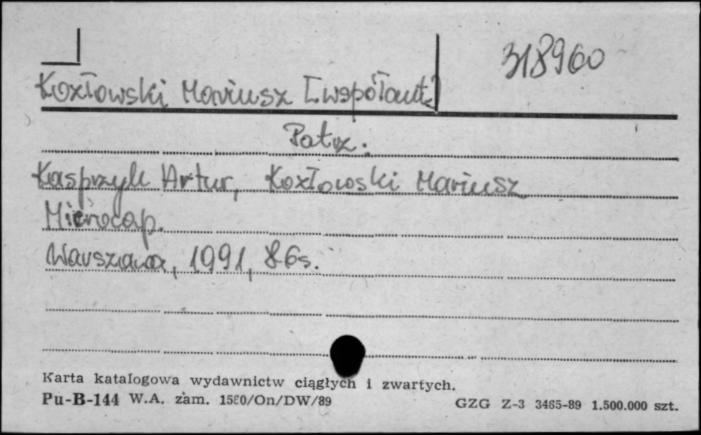 318960
Kozłowski Mariusz [współaut.]
Patrz.
Kasprzyk Artur, Kozłowski Mariusz
Microcap.
Warszawa, 1991, 86s.
Karta katalogowa wydawnictw ciągłych i zwartych.
Pu-B-144 W.A. zam. 1580/On/DW/89 GZG Z-3 3465-89 1.500.000 szt.